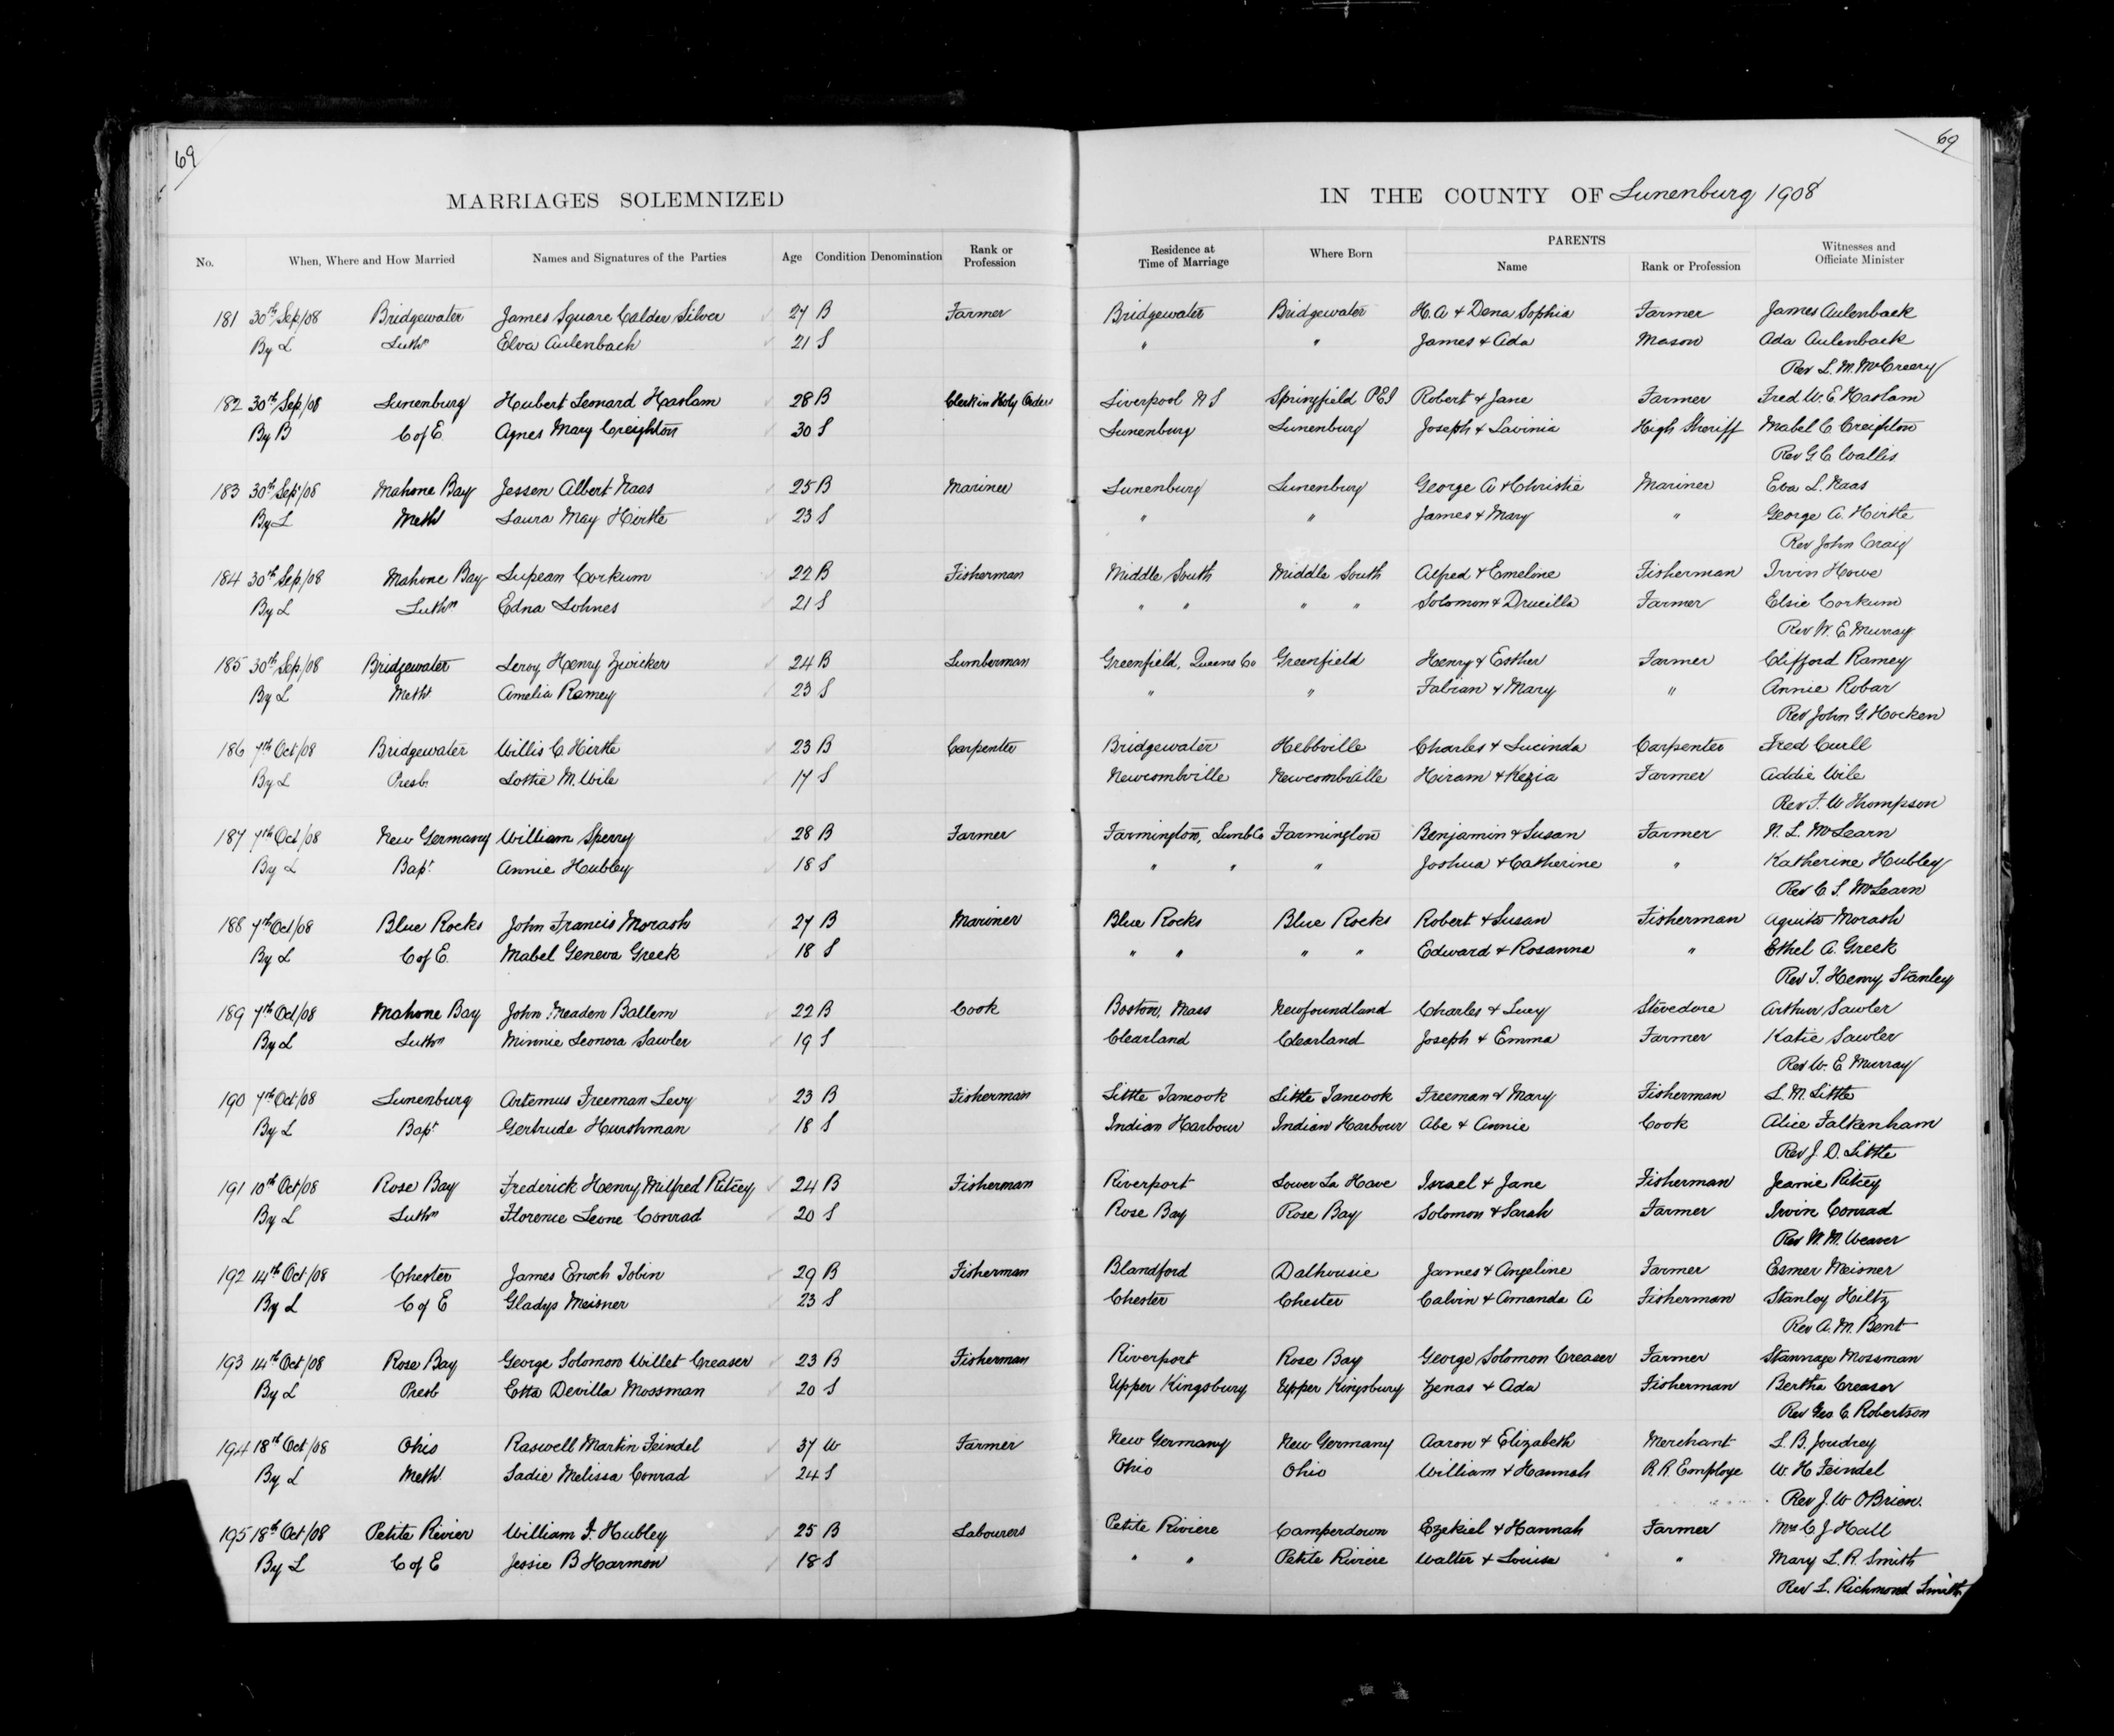 69
69
MARRIAGES SOLEMNIZED IN THE COUNTY OF Lunenburg 1908
No. When, Where and How Married Names and Signatures of the Parties Age Condition Denomination Rank or Profession Residence at Time of Marriage Where Born PARENTS Name Rank or Profession Witnesses and Officiate Minister
181 30th Sep/08 Bridgewater James Square Calder Silver 27 B Farmer Bridgewater Bridgewater H.A + Dena Sophia Farmer James Aulenback
By L Luthn Elva Aulenbach 21 S " " James + Ada Mason Ada Aulenback
Rev L. M. McCreery
182 30th Sep/08 Lunenburg Hubert Leonard Haslam 28 B Clerk in Holy Orders Liverpool N S Springfield PEI Robert + Jane Farmer Fred W. E. Haslam
By B C of E. Agnes Mary Creighton 30 S Lunenburg Lunenburg Joseph + Lavinia High Sheriff Mabel C Creighton
Rev G. C Wallis
183 30th Sep/08 Mahone Bay Jessen Albert Naas 25 B Mariner Lunenburg Lunenburg George A + Christie Mariner Eva L. Naas
By L Meth Laura May Hirtle 23 S " " James + Mary " George A. Hirtle
Rev John Craig
184 30th Sep/08 Mahone Bay Lupean Corkum 22 B Fisherman Middle South Middle South Alfred + Emeline Fisherman Irvin Howe
By L Luthn Edna Lohnes 21 S " " " " Solomon + Drucilla Farmer Elsie Corkum
Rev W. E. Murray
185 30th Sep/08 Bridgewater Leroy Henry Zwicker 24 B Lumberman Greenfield, Queens Co Greenfield Henry + Esther Farmer Clifford Ramey
By L Meth Amelia Ramey 23 S " " Fabian + Mary " Annie Robar
Rev John G. Hocken
186 7th Oct/08 Bridgewater Willis C Hirtle 23 B Carpenter Bridgewater Hebbville Charles + Lucinda Carpenter Fred Curll
By L Presb. Lottie M. Wile 17 S Newcombville Newcombville Hiram + Kezia Farmer Addie Wile
Rev F. W Thompson
187 7th Oct/08 New Germany William Sperry 28 B Farmer Farmington, Lunb Co Farmington Benjamin + Susan Farmer N. L. McLearn
By L Bapt. Annie Hubley 18 S " " " Joshua + Catherine " Katherine Hubley
Rev C. S. McLearn
188 7th Oct/08 Blue Rocks John Francis Morash 27 B Mariner Blue Rocks Blue Rocks Robert + Susan Fisherman Aquita Morash
By L C of E. Mabel Geneva Greek 18 S " " " " Edward + Rosanna " Ethel A. Greek
Rev T. Henry Stanley
189 7th Oct/08 Mahone Bay John Meaden Ballem 22 B Cook Boston, Mass Newfoundland Charles + Lucy Stevedore Arthur Sawler
By L Luthn Minnie Leonora Sawler 19 S Clearland Clearland Joseph + Emma Farmer Katie Sawler
Rev W. E. Murray
190 7th Oct/08 Lunenburg Artemus Freeman Levy 23 B Fisherman Little Tancook Little Tancook Freeman + Mary Fisherman L. M. Little
By L Bapt Gertrude Hurshman 18 S Indian Harbour Indian Harbour Abe + Annie Cook Alice Falkenham
Rev J. D. Little
191 10th Oct/08 Rose Bay Frederick Henry Milfred Ritcey 24 B Fisherman Riverport Lower La Have Israel + Jane Fisherman Jeanie Ritcey
By L Luthn Florence Leone Conrad 20 S Rose Bay Rose Bay Solomon + Sarah Farmer Irvin Conrad
Rev W. M. Weaver
192 14th Oct/08 Chester James Enoch Tobin 29 B Fisherman Blandford Dalhousie James + Angeline Farmer Esmer Meisner
By L C of E Gladys Meisner 23 S Chester Chester Calvin + Amanda A Fisherman Stanley Hiltz
Rev A. M. Bent
193 14th Oct/08 Rose Bay George Solomon Willet Creaser 23 B Fisherman Riverport Rose Bay George Solomon Creaser Farmer Stannage Mossman
By L Presb Etta Devilla Mossman 20 S Upper Kingsbury Upper Kingsbury Zenas + Ada Fisherman Bertha Creaser
Rev Geo C. Robertson
194 18th Oct/08 Ohio Raswell Martin Feindel 37 W Farmer New Germany New Germany Aaron + Elizabeth Merchant L. B. Joudrey
By L Meth. Sadie Melissa Conrad 24 S Ohio Ohio William + Hannah R. R. Employe W. H Feindel
Rev J. W O'Brien.
195 18th Oct/08 Petite Rivier William F. Hubley 25 B Labourers Petite Riviere Camperdown Ezekiel + Hannah Farmer Mrs C J Hall
By L C of E Jessie B Harmon 18 S " " Petite Riviere Walter + Louisa " Mary L. R. Smith
Rev L. Richmond Smith